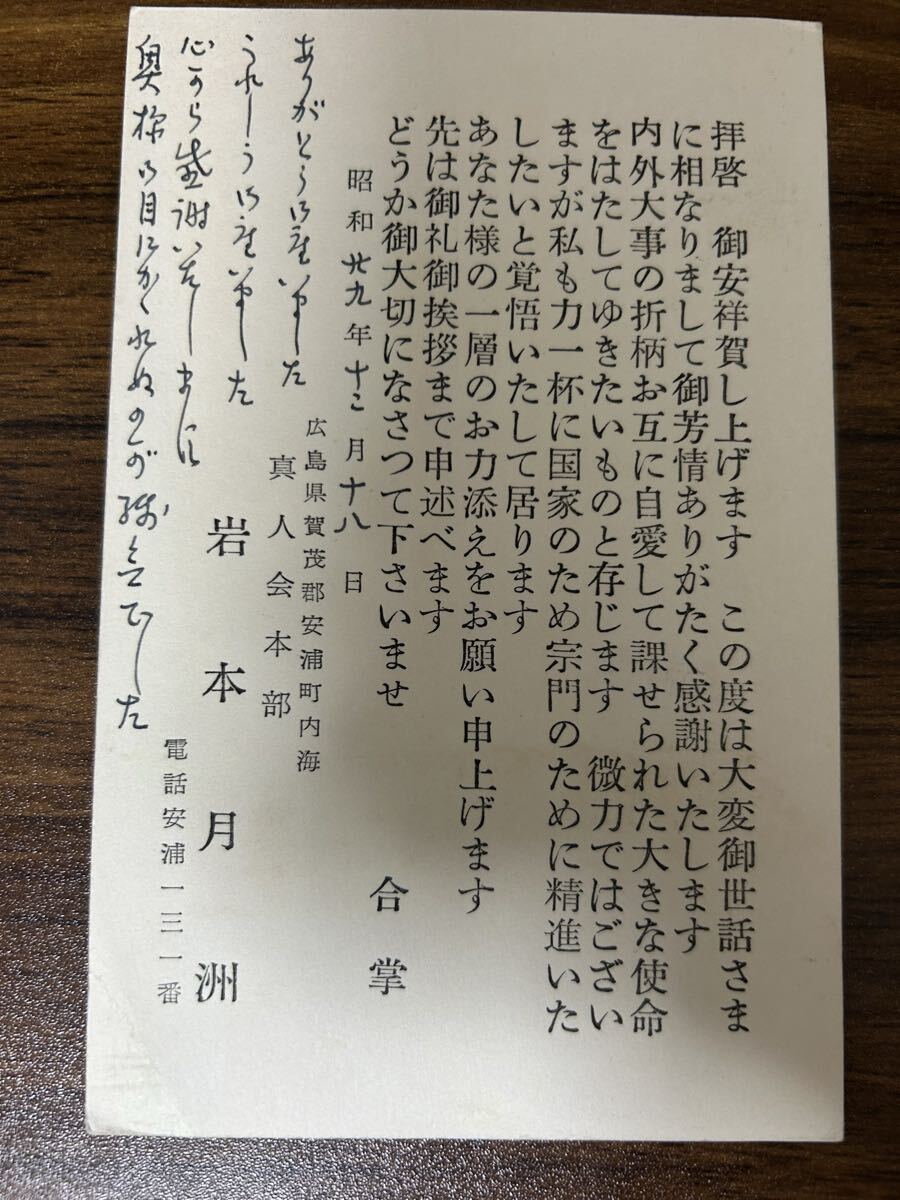 拝啓　御安祥賀し上げます　この度は大変御世話さま
に相なりまして御芳情ありがたく感謝いたします
内外大事の折柄お互に自愛して課せられた大きな使命
をはたしてゆきたいものと存じます　微力ではござい
ますが私も力一杯に国家のため宗門のために精進いた
したいと覚悟いたして居ります
あなた様の一層のお力添えをお願い申上げます
先は御礼御挨拶まで申述べます
どうか御大切になさつて下さいませ
合掌
昭和廿九年十二月十八日
広島県賀茂郡安浦町内海
真人会本部
岩本月洲
電話安浦一三一番
ありがとう御座いました
うれしう御座いました
心から感謝いたしまして
奥様御目にかゝれぬのが残念でした